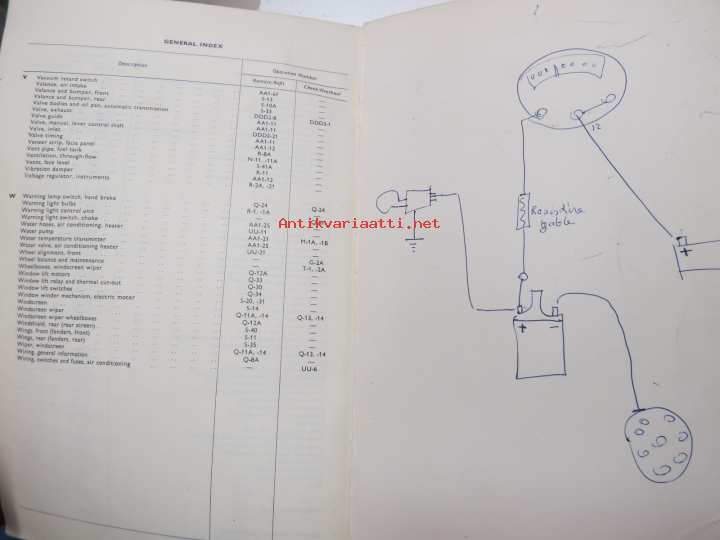 GENERAL INDEX
Description
Operation Number
Remove-Refit
Check-Overhaul
V Vacuum retard switch AA1-6F —
Valance, air intake S-13 —
Valance and bumper, front S-10A —
Valance and bumper, rear S-35 —
Valve bodies and oil pan, automatic transmission DDD2-6 DDD2-1
Valve, exhaust AA1-11 —
Valve guide AA1-11 —
Valve, manual, lever control shaft DDD2-21 —
Valve, inlet AA1-11 —
Valve timing AA1-12 —
Veneer strip, facia panel R-8A —
Vent pipe, fuel tank N-11, -11A —
Ventilation, through-flow S-41A —
Vents, face level R-11 —
Vibration damper AA1-12 —
Voltage regulator, instruments R-2A, -21 —
W Warning lamp switch, hand brake
Warning light bulbs Q-24 Q-24
Warning light control unit R-1, -1A
Warning light switch, choke
Water hoses, air conditioning, heater AA1-25
Water pump UU-11
Water temperature transmitter AA1-21 H-1A, -1B
Water valve, air conditioning heater AA1-25 —
Wheel alignment, front UU-21 —
Wheel balance and maintenance — G-2A
Wheelboxes, windscreen wiper — T-1, -2A
Window lift motors Q-12A —
Window lift relay and thermal cut-out Q-33 —
Window lift switches Q-30 —
Window winder mechanism, electric motor Q-34 —
Windscreen S-20, -21 —
Windscreen wiper S-14 —
Windscreen wiper wheelboxes Q-11A, -14 Q-13, -14
Windshield, rear (rear screen) Q-12A —
Wings, front (fenders, front) S-40 —
Wings, rear (fenders, rear) S-11 —
Wiper, windscreen S-35 —
Wiring, general information Q-11A, -14 Q-13, -14
Wiring, switches and fuses, air conditioning Q-8A —
— UU-6
12
+
+ −
Antikvariaatti.net